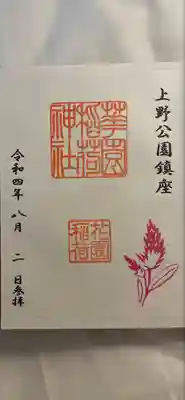 上野公園鎮座
華園
稲荷
神社
花園
稲荷
令和四年 八月 二 日参拝